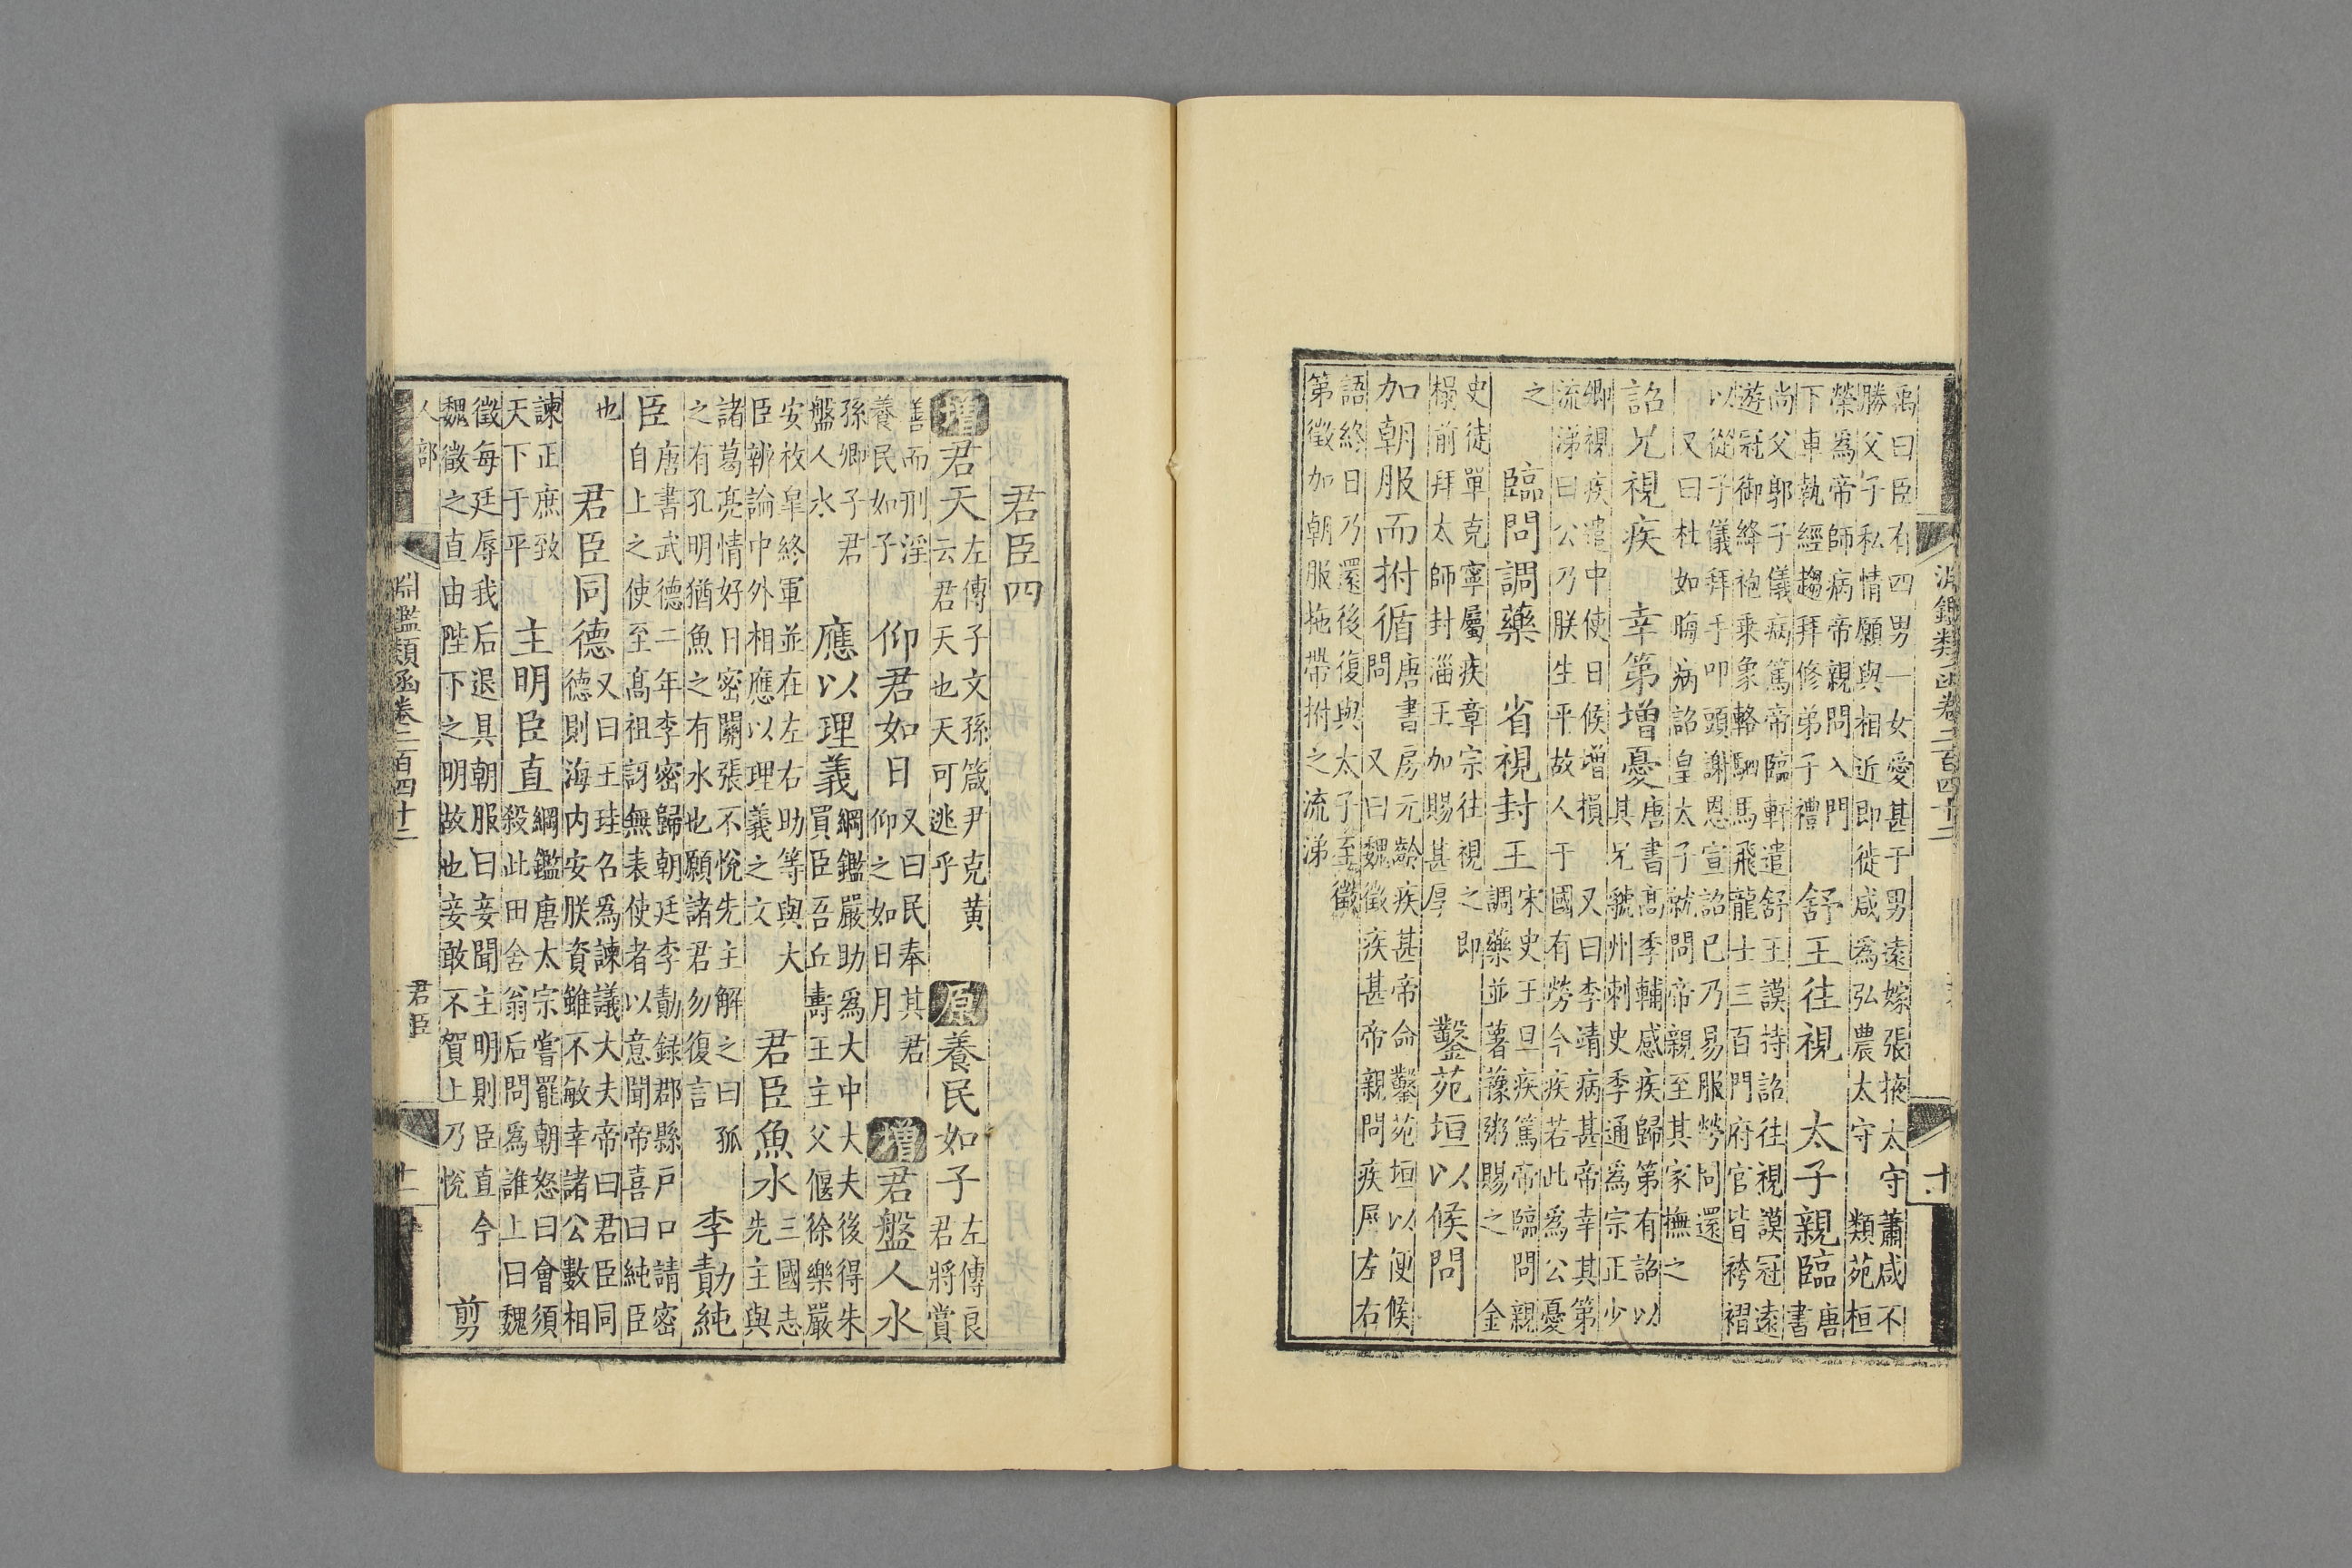 淵鑑類函卷二百四十二
十
禹曰臣有四男一女愛甚于男遠嫁張掖太守蕭咸不
勝父子私情願與相近即徙咸為弘農太守 類苑桓
榮為帝師病帝親問入門
下車執經趨拜修弟子禮
舒王往視 太子親臨
唐
書
尚父郭子儀病篤帝臨軒遣舒王謨持詔往視謨冠遠
遊冠御絳袍乘象輅駟馬飛龍士三百門府官皆袴褶
以從子儀拜手叩頭謝恩宣詔已乃易服勞問還
又曰杜如晦病詔皇太子就問帝親至其家撫之
詔兄視疾 幸第增憂
唐書髙季輔感疾歸第有詔以
其兄虢州刺史季通為宗正少
卿視疾遣中使日候增損 又曰李靖病甚帝幸其第
流涕曰公乃朕生平故人于國有勞今疾若此為公憂
之
臨問調藥 省視封王
宋史王旦疾篤帝臨問親
調藥並薯蕷粥賜之 金
史徒單克寧屬疾章宗往視之即
榻前拜太師封淄王加賜甚厚
鑿苑垣以候問
加朝服而拊循
唐書房元齡疾甚帝命鑿苑垣以便候
問 又曰魏徵疾甚帝親問疾屏左右
語終日乃還後復與太子至徵
第徵加朝服拖帶拊之流涕
君臣四
增君天
左傳子文孫箴尹克黄
云君天也天可逃乎
原養民如子
左傳良
君將賞
善而刑淫
養民如子
仰君如日
又曰民奉其君
仰之如日月
增君盤人水
孫卿子君
盤人水
應以理義
綱鑑嚴助為大中大夫後得朱
買臣吾丘壽王主父偃徐樂嚴
安枚皐終軍並在左右助等與大
臣辨論中外相應以理義之文
君臣魚水
三國志
先主與
諸葛亮情好日密關張不悅先主解之曰孤
之有孔明猶魚之有水也願諸君勿復言
李勣純
臣
唐書武德二年李密歸朝廷李勣録郡縣戸口請密
自上之使至髙祖訝無表使者以意聞帝喜曰純臣
也
君臣同德
又曰王珪名為諫議大夫帝曰君臣同
德則海内安朕資雖不敏幸諸公數相
諫正庶致
天下于平
主明臣直
綱鑑唐太宗嘗罷朝怒曰會須
殺此田舍翁后問為誰上曰魏
徵每廷辱我后退具朝服曰妾聞主明則臣直今
魏徵之直由陛下之明故也妾敢不賀上乃悅
剪
人部
淵鑑類函卷二百四十二
君臣
十一